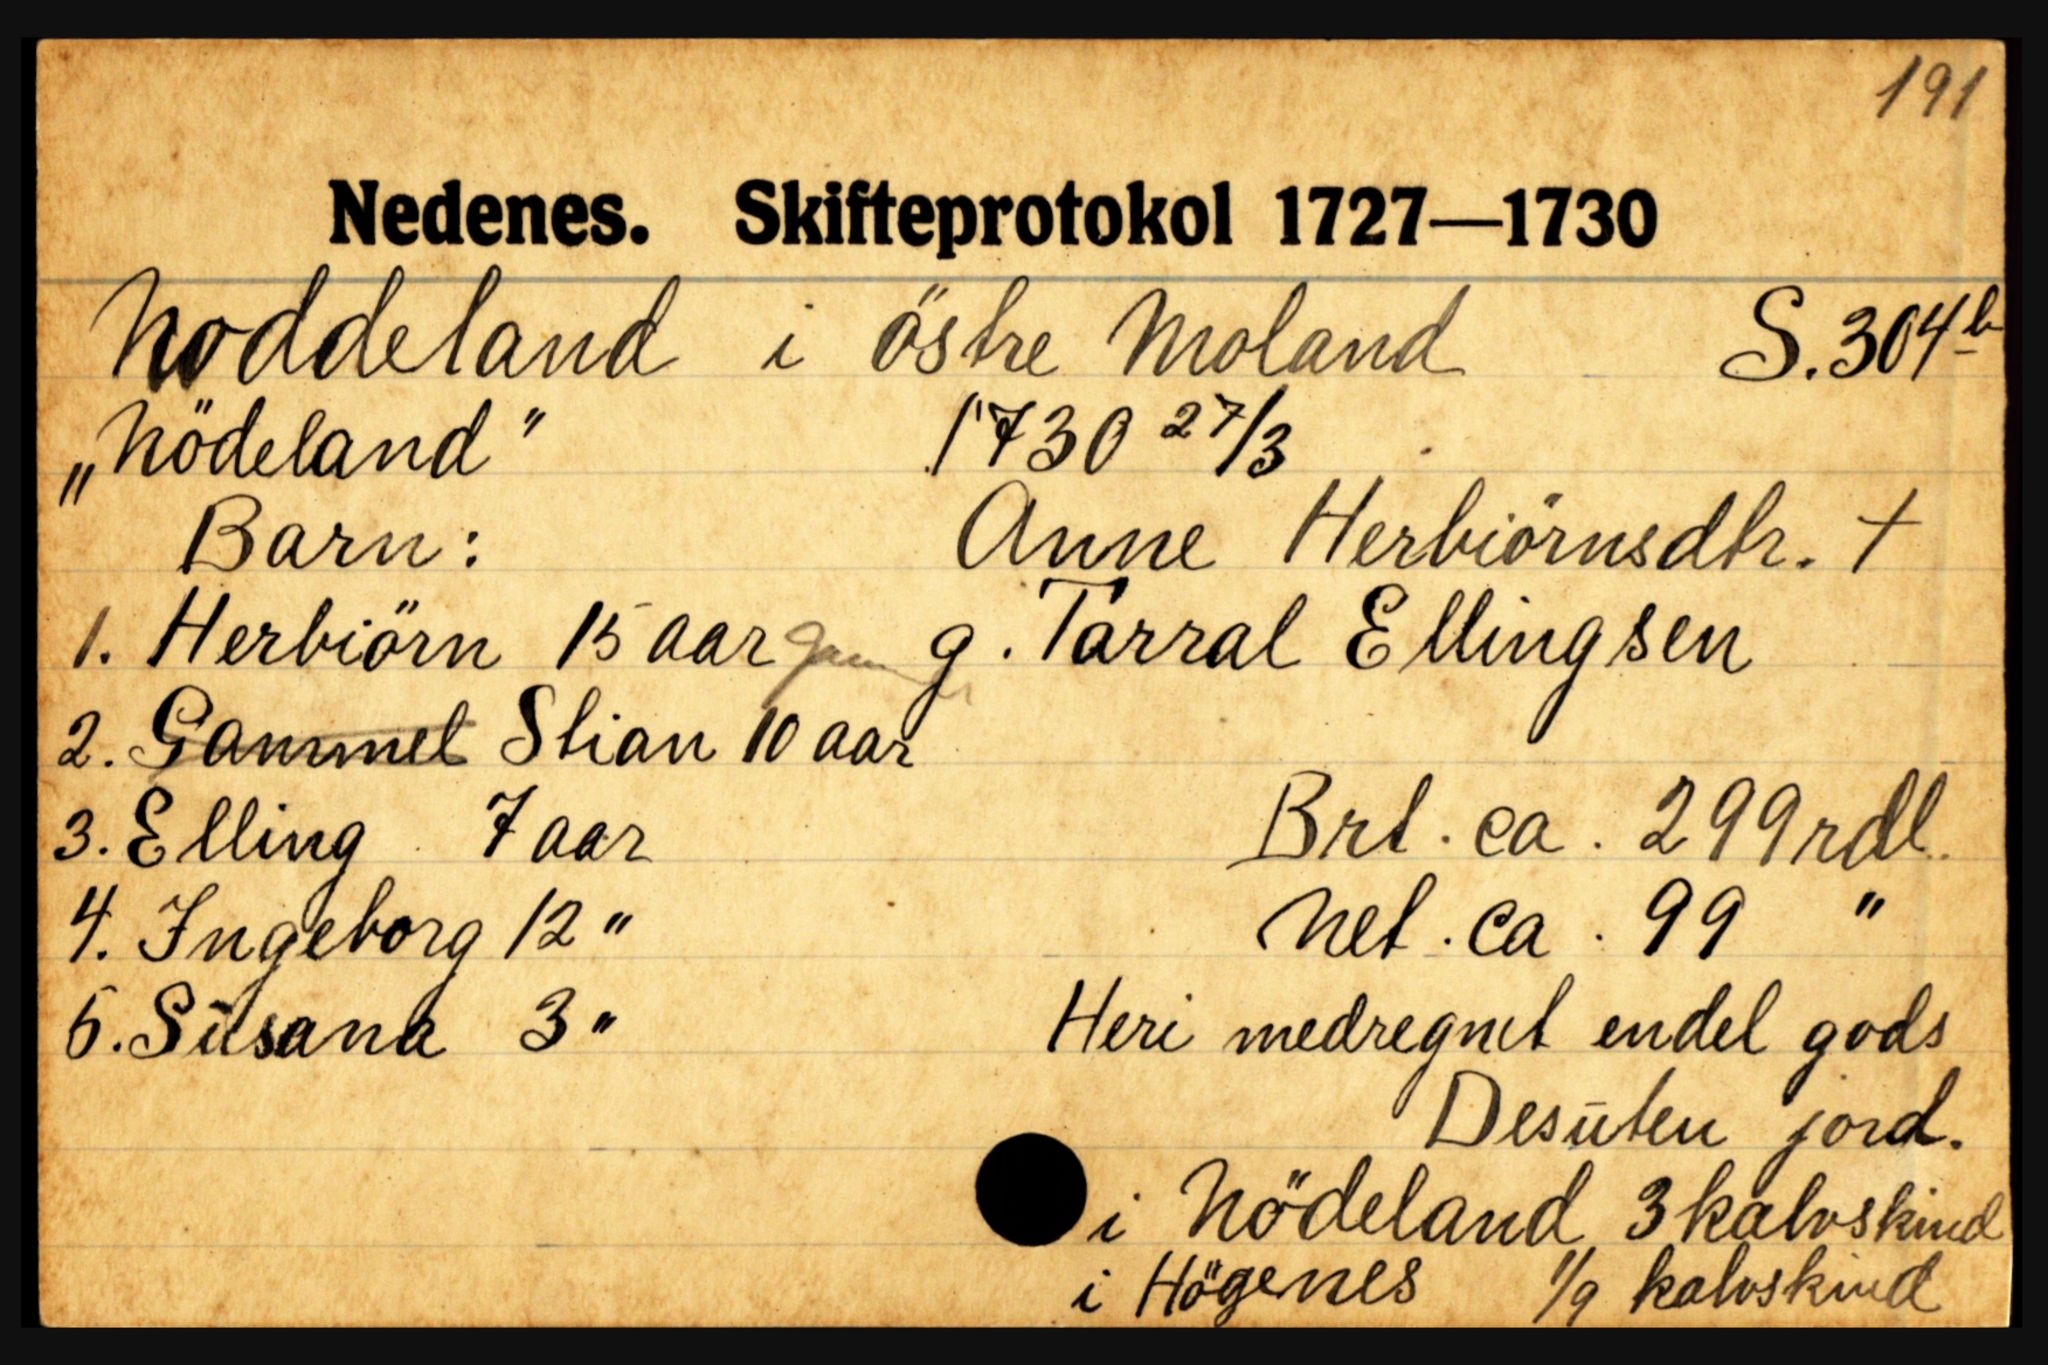 191
Nedenes. Skifteprotokol 1727—1730
Noddeland i östre Moland S. 304b
„Nödeland" 1730 27/3
Barn: Anne Herbiörnsdtr. †
1. Herbiörn 15 aar g. Tarral Ellingsen
2. Gammel Stian 10 aar
3. Elling 7 aar Brt. ca. 299 rdl.
4. Ingeborg 12 " Net. ca. 99 "
5. Susana 3 " Heri medregnet endel gods
Desuten jord.
i Nödeland 3 kalvskind
i Högenes 1/9 kalvskind